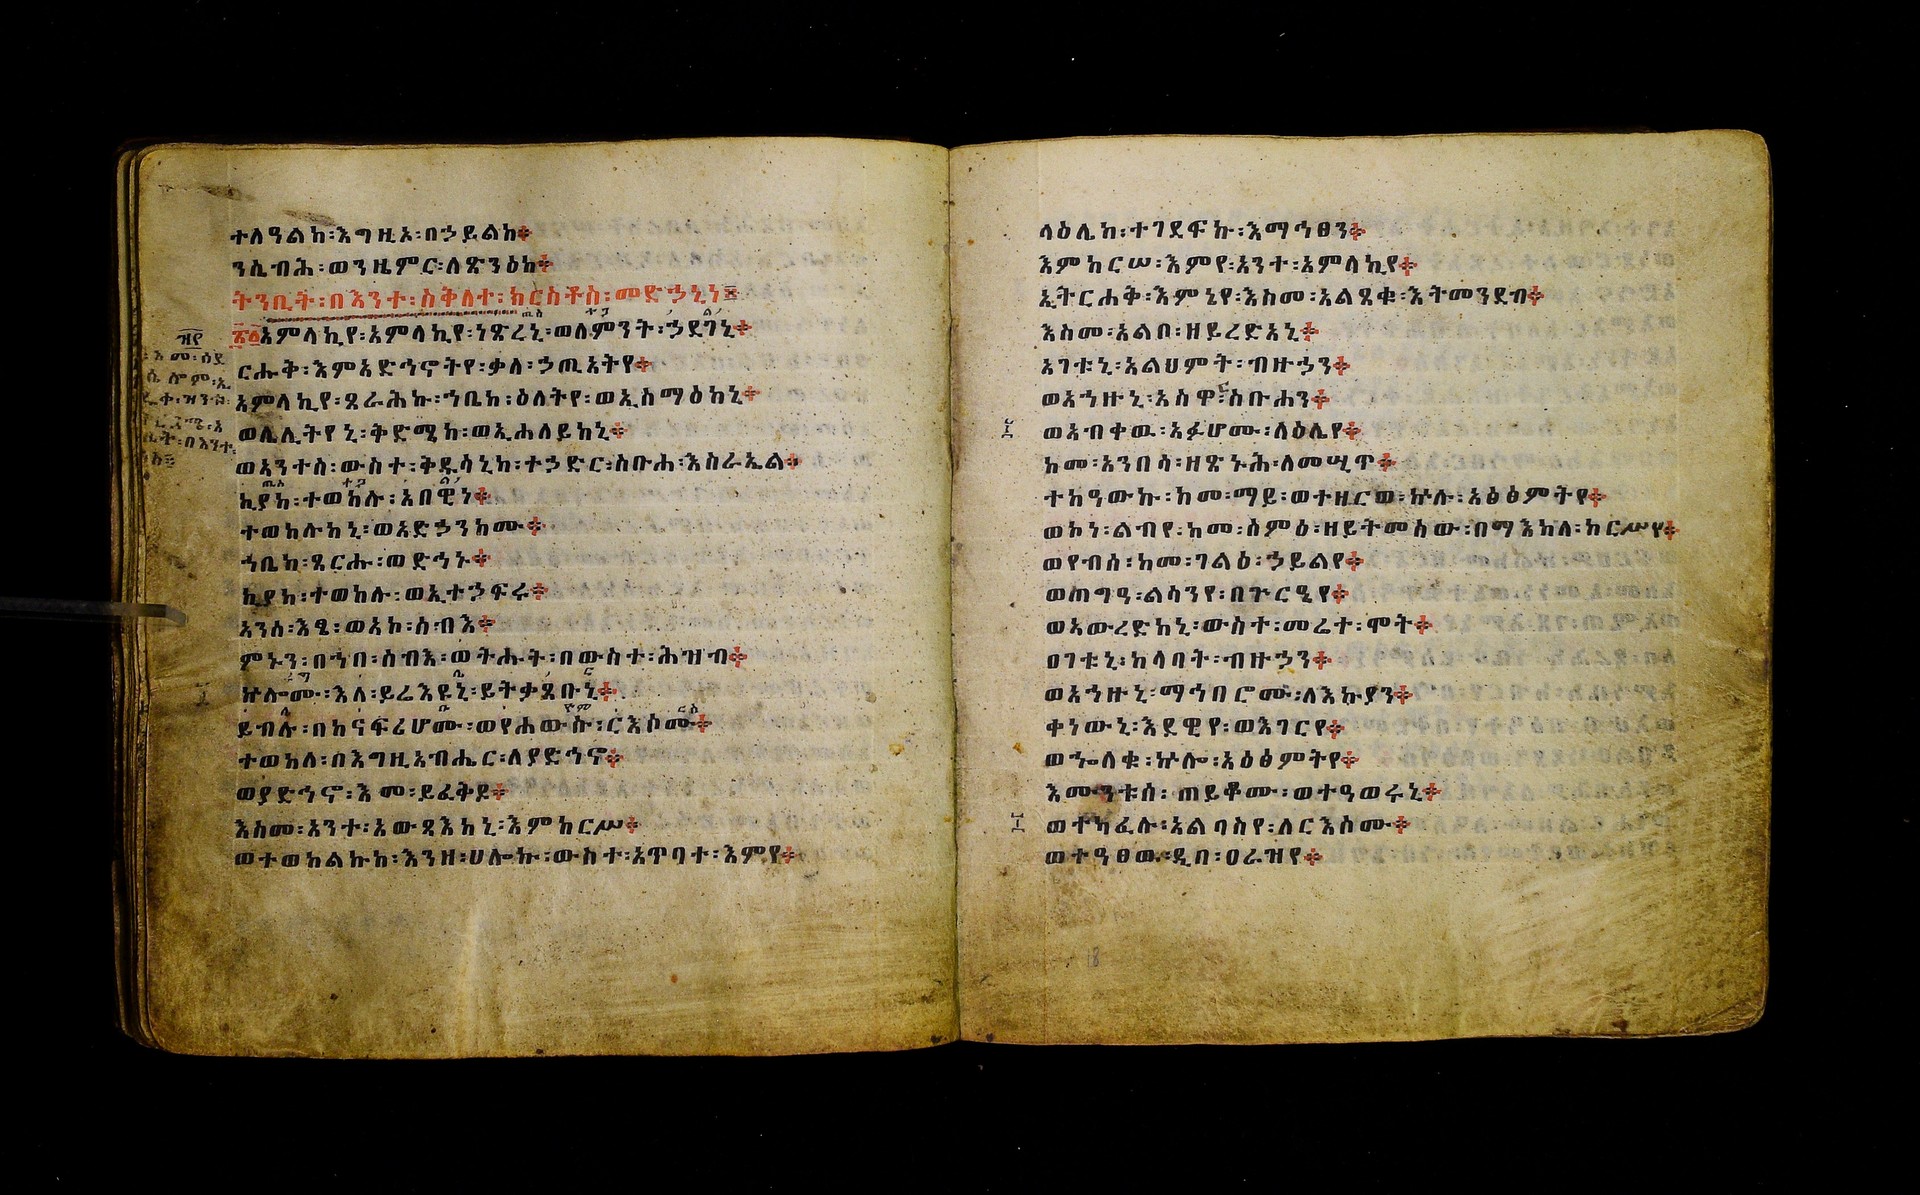 ተለዓልከ፡እግዚአ፡በኃይልከ፨
ንሴብሕ፡ወንዜምር፡ለጽንዕከ፨
ትንቢት፡በእንተ፡ስቅለተ፡ክርስቶስ፡መድኃኒነ፨
፳፩አምላኪየ፡አምላኪየ፡ነጽረኒ፡ወለምንት፡ኃደገኒ፨
ርሑቅ፡እምአድኅኖትየ፡ቃለ፡ኃጢአትየ፨
አምላኪየ፡ጸራሕኩ፡ኀቤከ፡ዕለትየ፡ወኢስማዕከኒ፨
ወሌሊትየኒ፡ቅድሜከ፡ወኢሐለይከኒ፨
ወአንተሰ፡ውስተ፡ቅዱሳኒከ፡ተኃድር፡ስቡሐ፡እስራኤል፨
ኪያከ፡ተወከሉ፡አበዊነ፨
ተወከሉከኒ፡ወአድኃንከሙ፨
ኀቤከ፡ጸርሑ፡ወድኅኑ፨
ኪያከ፡ተወከሉ፡ወኢተኃፍሩ፨
አንሰ፡እፄ፡ወአኮ፡ሰብእ፨
ምኑን፡በኀበ፡ሰብእ፡ወትሑት፡በውስተ፡ሕዝብ፨
ኵሎሙ፡እለ፡ይሬእዩኒ፡ይትቃጸቡኒ፨
ይብሉ፡በከናፍሪሆሙ፡ወየሐውሱ፡ርእሶሙ፨
ተወከለ፡በእግዚአብሔር፡ለያድኅኖ፨
ወያድኅኖ፡እመ፡ይፈቅዶ፨
እስመ፡አንተ፡አውጻእከኒ፡እምከርሥ፨
ወተወከልኩከ፡እንዘ፡ሀሎኩ፡ውስተ፡አጥባተ፡እምየ፨
ላዕሌከ፡ተገደፍኩ፡እማኅፀን፨
እምከርሠ፡እምየ፡አንተ፡አምላኪየ፨
ኢትርሐቅ፡እምኔየ፡እስመ፡አልጸቁ፡እትመንደብ፨
እስመ፡አልቦ፡ዘይረድአኒ፨
አገቱኒ፡አልህምት፡ብዙኃን፨
ወአኀዙኒ፡አስዋር፡ስቡሐን፨
ወአብቀዉ፡አፉሆሙ፡ላዕሌየ፨
ከመ፡አንበሳ፡ዘጽኑሕ፡ለመሢጥ፨
ተከዓውኩ፡ከመ፡ማይ፡ወተዘርወ፡ኵሉ፡አዕፅምትየ፨
ወኮነ፡ልብየ፡ከመ፡ሰምዕ፡ዘይትመሰው፡በማእከለ፡ከርሥየ፨
ወየብሰ፡ከመ፡ገልዕ፡ኃይልየ፨
ወጠግዓ፡ልሳንየ፡በጕርዔየ፨
ወአውረድከኒ፡ውስተ፡መሬተ፡ሞት፨
ዐገቱኒ፡ከላባት፡ብዙኃን፨
ወአኀዙኒ፡ማኅበሮሙ፡ለእኩያን፨
ቀነውኒ፡እደዊየ፡ወእገርየ፨
ወኈለቁ፡ኵሎ፡አዕፅምትየ፨
እሙንቱሰ፡ጠይቆሙ፡ወተዓወሩኒ፨
ወተካፈሉ፡አልባስየ፡ለርእሶሙ፨
ወተዓፀዉ፡ዲበ፡ዐራዝየ፨
18